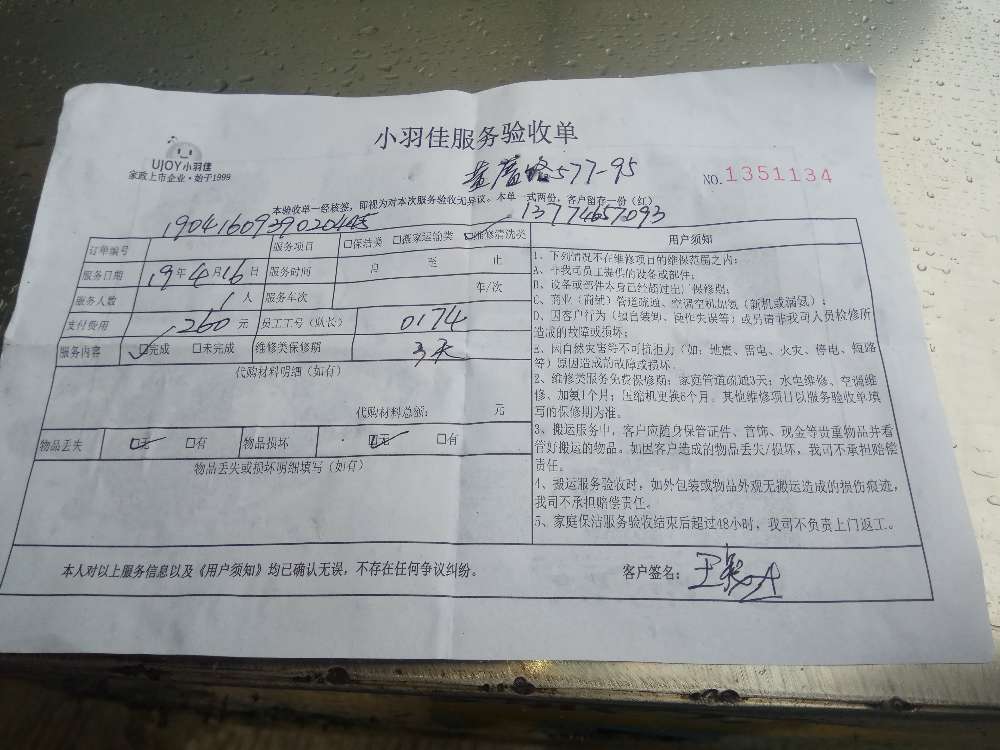 小羽佳服务验收单
UJOY小羽佳
家政上市企业·始于1999
路577-95
NO.1351134
本验收单一经核签，即视为对本次服务验收无异议。本单一式两份，客户留存一份（红）
13774657093
订单编号 1904160939020445
服务项目 □保洁类 □搬家运输类 ☑维修清洗类
服务日期 19年4月16日 服务时间 月 至 止
服务人数 1人 服务车次 车/次
支付费用 260元 员工工号（队长） 0174
服务内容 ☑完成 □未完成 维修类保修期 3天
代购材料明细（如有）
代购材料总额： 元
物品丢失 ☑无 □有 物品损坏 ☑无 □有
物品丢失或损坏明细填写（如有）
用户须知
1、下列情况不在维修项目的维保范围之内：
A、非我司员工提供的设备或部件；
B、设备或部件本身已经超过出厂保修期；
C、商业（商铺）管道疏通、空调空机加氨（新机或漏氨）；
D、因客户行为（如自装卸、误操作失误等）或另请非我司人员检修所
造成的故障或损坏；
E、因自然灾害等不可抗拒力（如：地震、雷电、火灾、停电、短路
等）原因造成的故障或损坏。
2、维修类服务免费保修期：家庭管道疏通3天；水电维修、空调维
修、加氨1个月；压缩机更换6个月。其他维修项目以服务验收单填
写的保修期为准。
3、搬运服务中，客户应随身保管证件、首饰、现金等贵重物品并看
管好搬运的物品。如因客户造成的物品丢失/损坏，我司不承担赔偿
责任。
4、搬运服务验收时，如外包装或物品外观无搬运造成的损伤痕迹，
我司不承担赔偿责任。
5、家庭保洁服务验收结束后超过48小时，我司不负责上门返工。
本人对以上服务信息以及《用户须知》均已确认无误，不存在任何争议纠纷。
客户签名：王